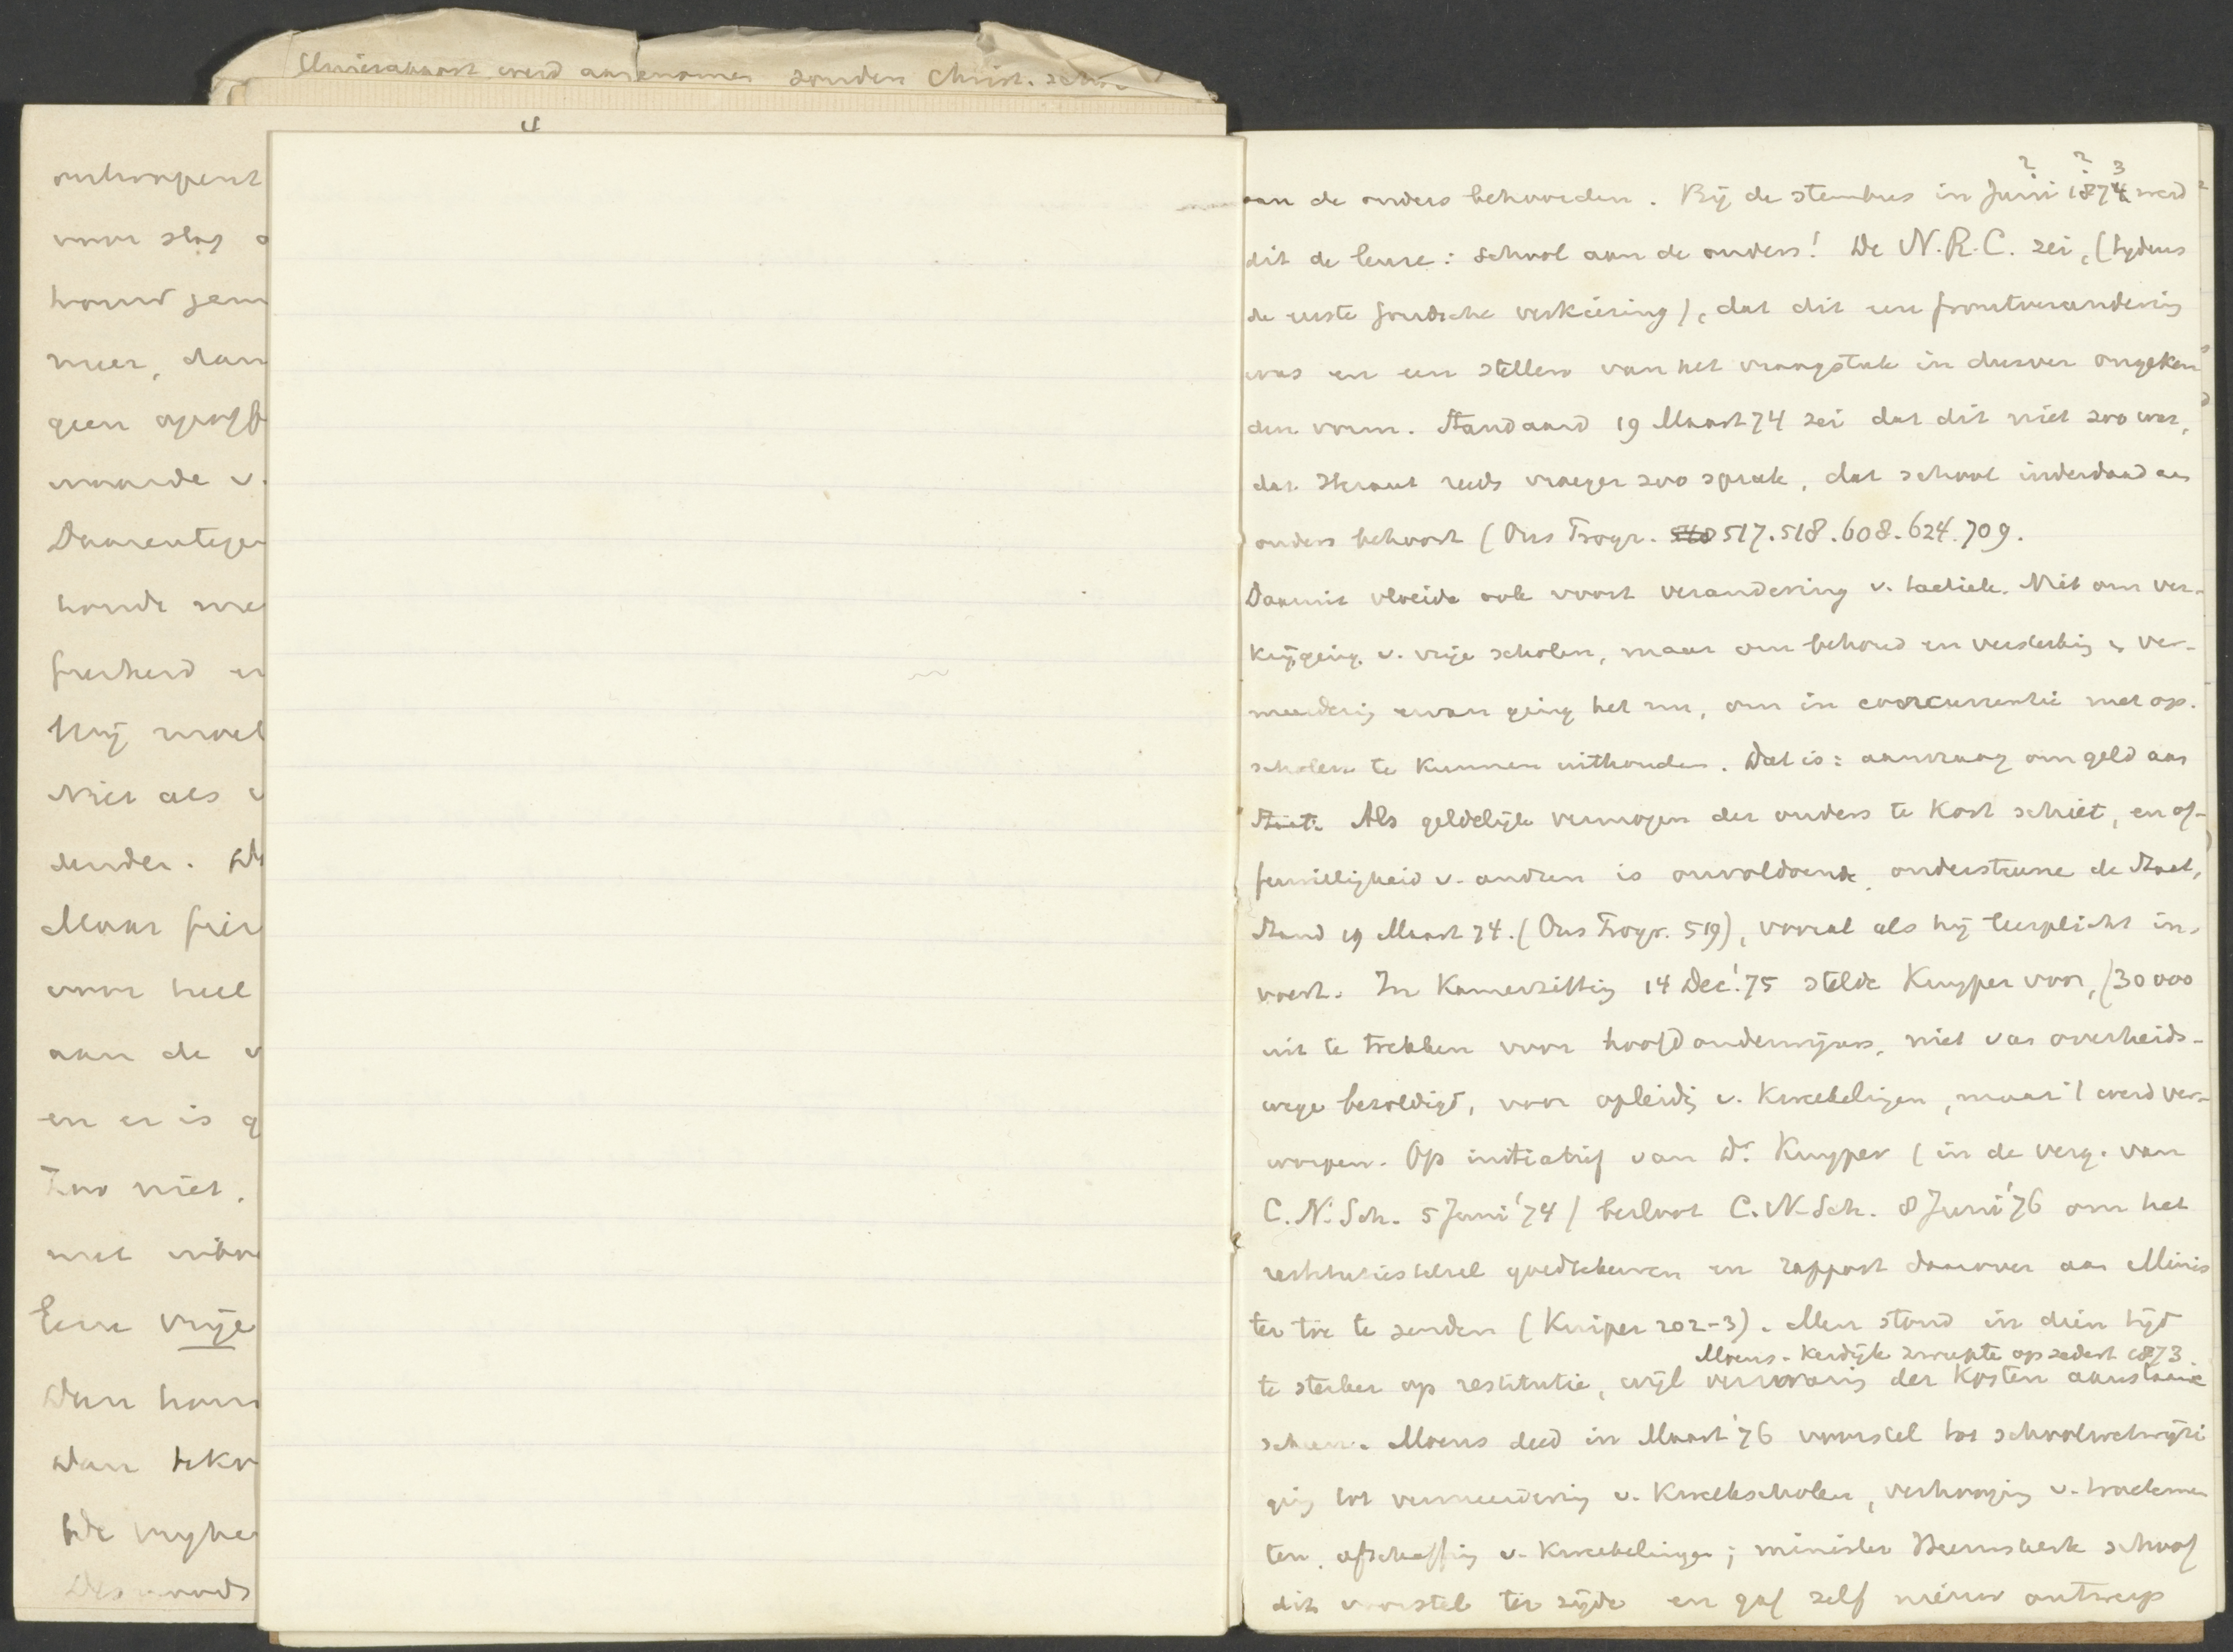 Unierapport werd aangenomen zonder Christ. scho
ontwapent
voor slag
houd
meer, dan
geen
waarde v.
Daarentege
houde me
heid en
Hij moet
Niet als
der. W
Maar
voor heel
aan de v
en er is g
Zoo niet.
met
Eene vrije
Dan
Dan
De vryhe
aan de ouders behoorden. Bij de stembus in Juni 1874 3 werd
dit de leuze: School aan de ouders! De N.R.C. zei, (tydens
de eerste Goudsche verkiezing), dat dit een frontverandering
was en een stellen van het vraagstuk in dusver ongeken
den vorm. Standaard 19 Maart 74 zei dat dit niet zoo was,
dat reeds vroeger zoo sprak, dat school inderdaad aan
ouders behoort (Ons Progr. 517.518.608.624.709.
Daaruit vloeide ook voort verandering v. tactiek. Niet om ver-
krijging v. vrije scholen, maar om behoud en versterking en ver-
meerdering ervan ging het nu, om in concurrentie met op.
scholen te kunnen uithouden. Dat is: aanvraag om geld aan
Staat. Als geldelijk vermogen der ouders te kort schiet, en of-
fervilligheid v. andren is onvoldoende, ondersteune de Staat,
Stand 19 Maart 74. (Ons Progr. 519), vooral als hij leerplicht in-
voert. In Kamerzitting 14 Dec. '75 stelde Kuyper voor, f 30 000
uit te trekken voor hoofdonderwijzers, niet van overheids-
wege bezoldigd, voor opleiding v. kweekelingen, maar 't werd ver-
worpen. Op initiatief van Dr. Kuyper (in de verg. van
C.N. Sch. 5 Juni '74) besloot C.N. Sch. 8 Juni '76 om het
restitutiestelsel goedtekeuren en rapport daarover aan Minis
ter toe te zenden (Kuiper 202-3). Men stond in dien tijd
Moens - Kerdijk zweepte op sedert 1873.
te sterker op restitutie, wijl der kosten aanstaande
scheen. Moens deed in Maart '76 voorstel tot schoolwetwijzi
ging tot vermeerdering v. kweekscholen, verhooging v. tractemen
ten, afschaffing v. kweekelingen; minister Heemskerk schoof
dit voorstel ter zijde en gaf zelf nieuw ontwerp